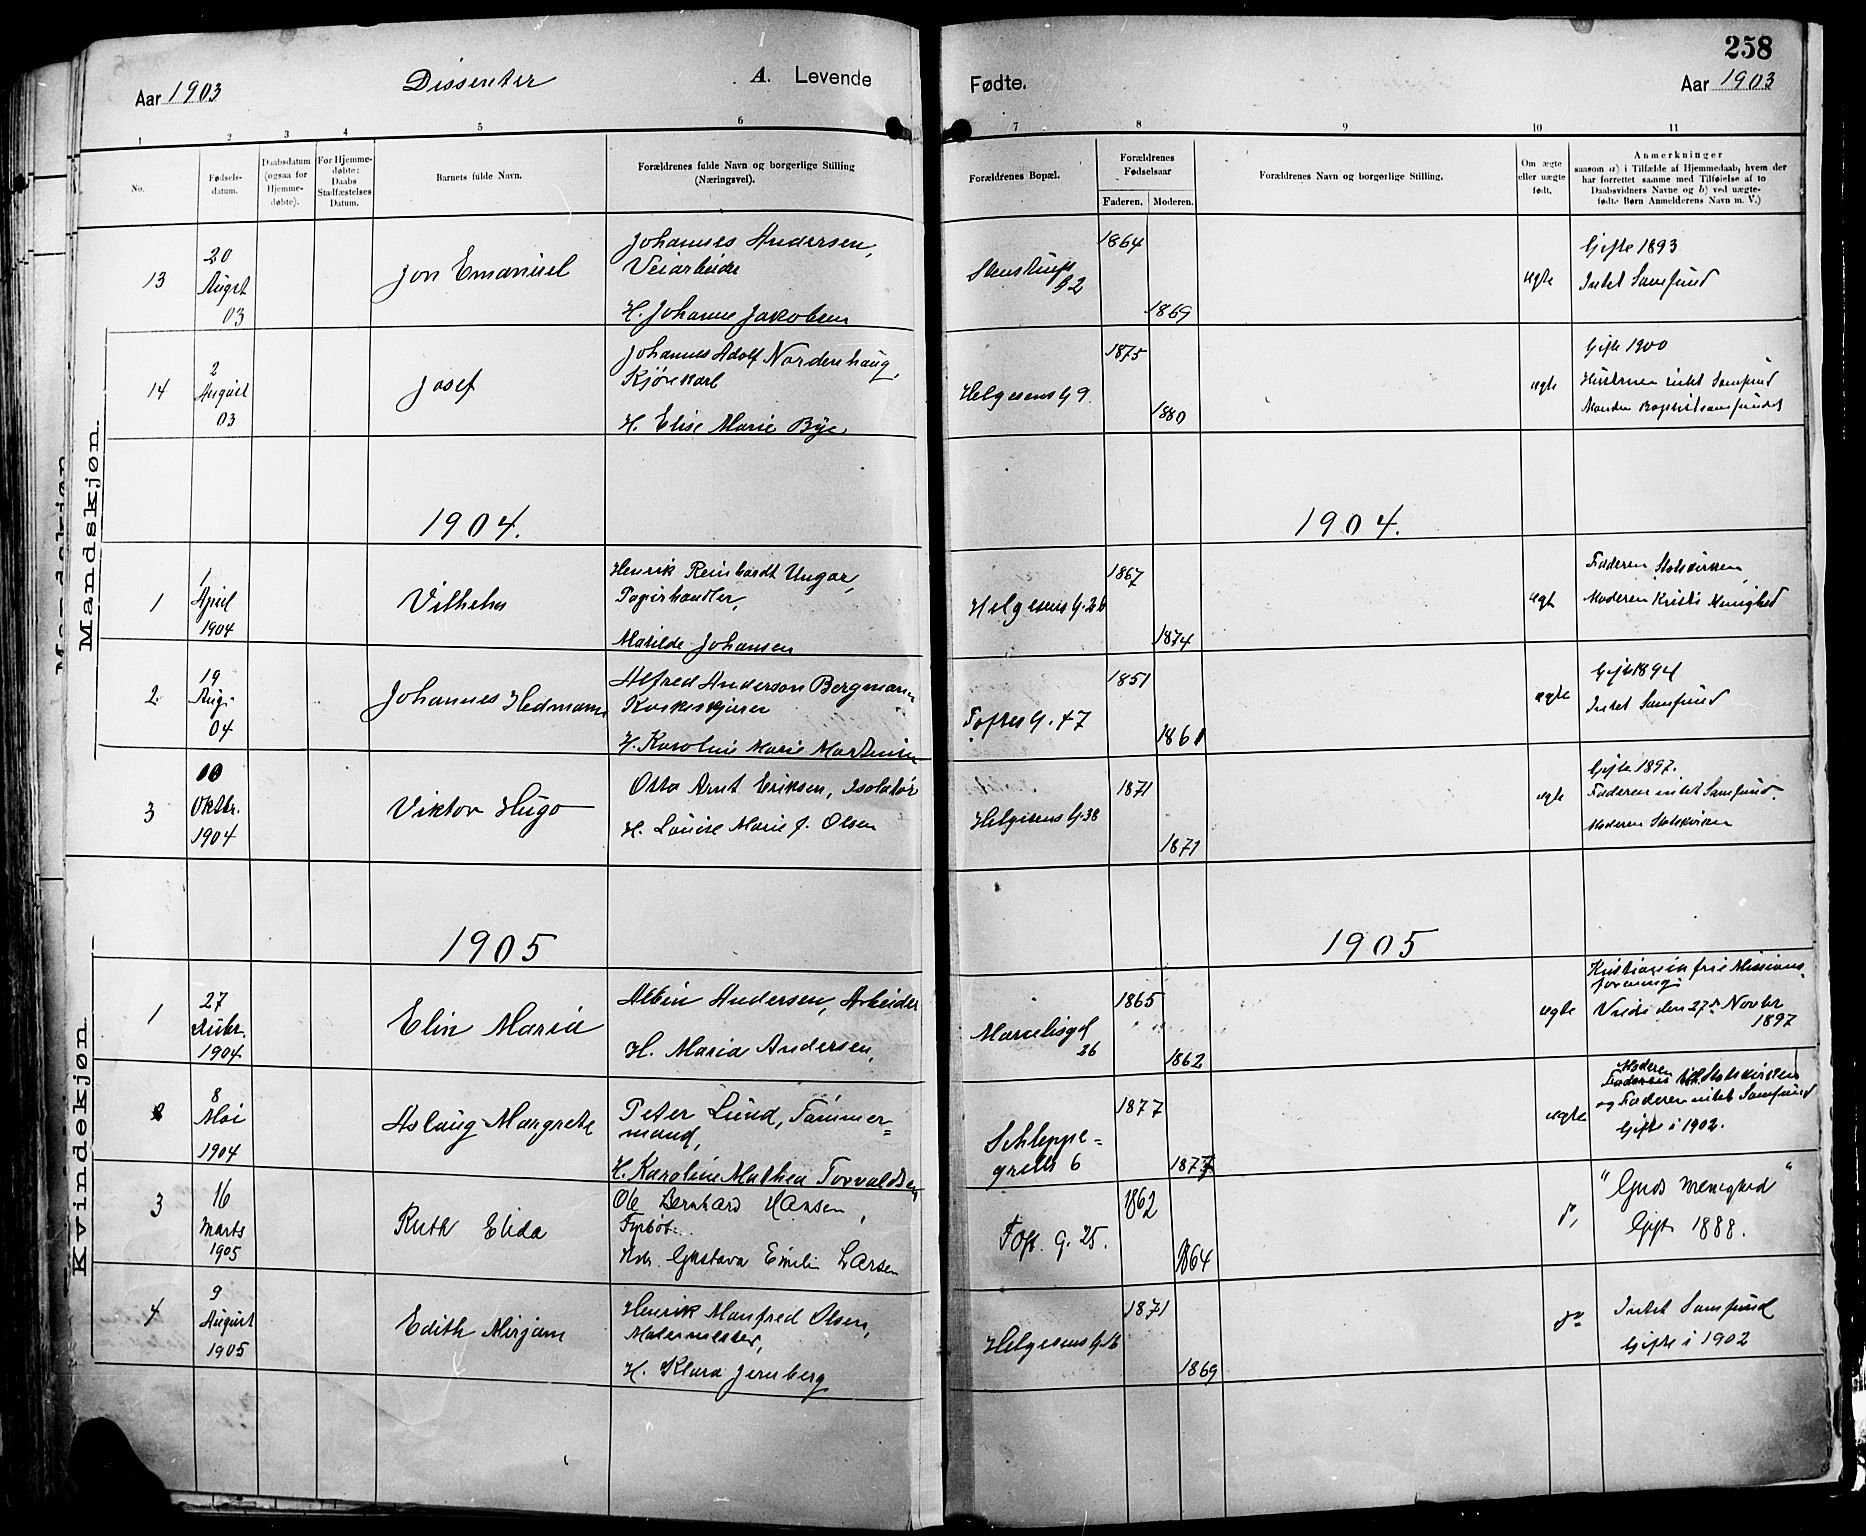 258
Aar 1903
Dissenter
A. Levende
Fødte.
Aar 1903
1 2 3 4 5 6 7 8 9 10 11
No.
Fødsels-
datum.
Daabsdatum
(ogsaa for
Hjemme-
døbte).
For Hjemme-
døbte:
Daabs
Stadfæstelses
Datum.
Barnets fulde Navn.
Forældrenes fulde Navn og borgerlige Stilling
(Næringsvei).
Forældrenes Bopæl.
Forældrenes
Fødselsaar
Faderen. Moderen.
Forældrenes Navn og borgerlige Stilling.
Om ægte
eller uægte
født.
Anmerkninger
saasom a) i Tilfælde af Hjemmedaab, hvem der
har forrettet samme med Tilføielse af to
Daabsvidners Navne og b) ved uægte-
fødte Børn Anmelderens Navn m. V.)
Mandskjøn
Mandskjøn
13
20
August
03
Jon Emanuel
Johannes Andersen,
Veiarbeider
H. Johanne Jakobsen
1864
1869
ægte
Gifte 1893
Intet Samfund
14
2
August
03
Josef
Johannes Adolf Nordenhaug,
Kjørekarl
H. Elise Marie Bye
Helgesens G 9
1875
1880
ægte
Gifte 1900
Hustruen intet Samfund
Manden Baptistsamfundet
1904.
1904.
1
1
April
1904
Vilhelm
Henrik Reinhardt Ungar,
Papirhandler,
Matilde Johansen
Helgesens G. 26
1867
1874
ægte
Faderen Statskirken,
Moderen Kristi Menighed
2
19
Aug.
04
Johannes Hedmann
Alfred Anderson Bergmann
H. Karoline Marie Martinsen
Toftes G. 47
1851
1861
ægte
Gifte 1894
Intet Samfund
3
10
Oktbr.
1904
Viktor Hugo
Otto Arnt Eriksen, Isolatør
H. Louise Marie J. Olsen
Helgesens G. 38
1871
1871
ægte
Gifte 1897.
Faderen intet Samfund.
Moderen Statskirken
1905
1905
Kvindekjøn
1
27
1904
Elin Maria
Albin Andersen, Arbeider
H. Maria Andersen,
36
1865
1862
ægte
Kristiania frie Missions-
forening.
Viede den 27de Novbr
1897
2
8
Mai
1904
Aslaug Margrete
Peter Lund, Tømmer=
mand,
H. Karoline Mathea Torvaldsen
Schleppe=
grells 6
1877
1877
ægte
Moderen
Statskirken
og Faderen intet Samfund
Gifte i 1902.
3
16
Marts
1905
Ruth Elida
Ole Bernhard Hansen,
Fyrbøt.
Hstr. Gustava Emilie Larsen
Toft. g. 25.
1862
1864
do
"Guds Menighed"
Gift 1888.
4
9
August
1905
Edith Mirjam
Henrik Manfred Olsen,
Malermester,
H. Klara Jernberg
Helgesens G. 16
1871
1869
do
Intet Samfund
Gifte i 1902